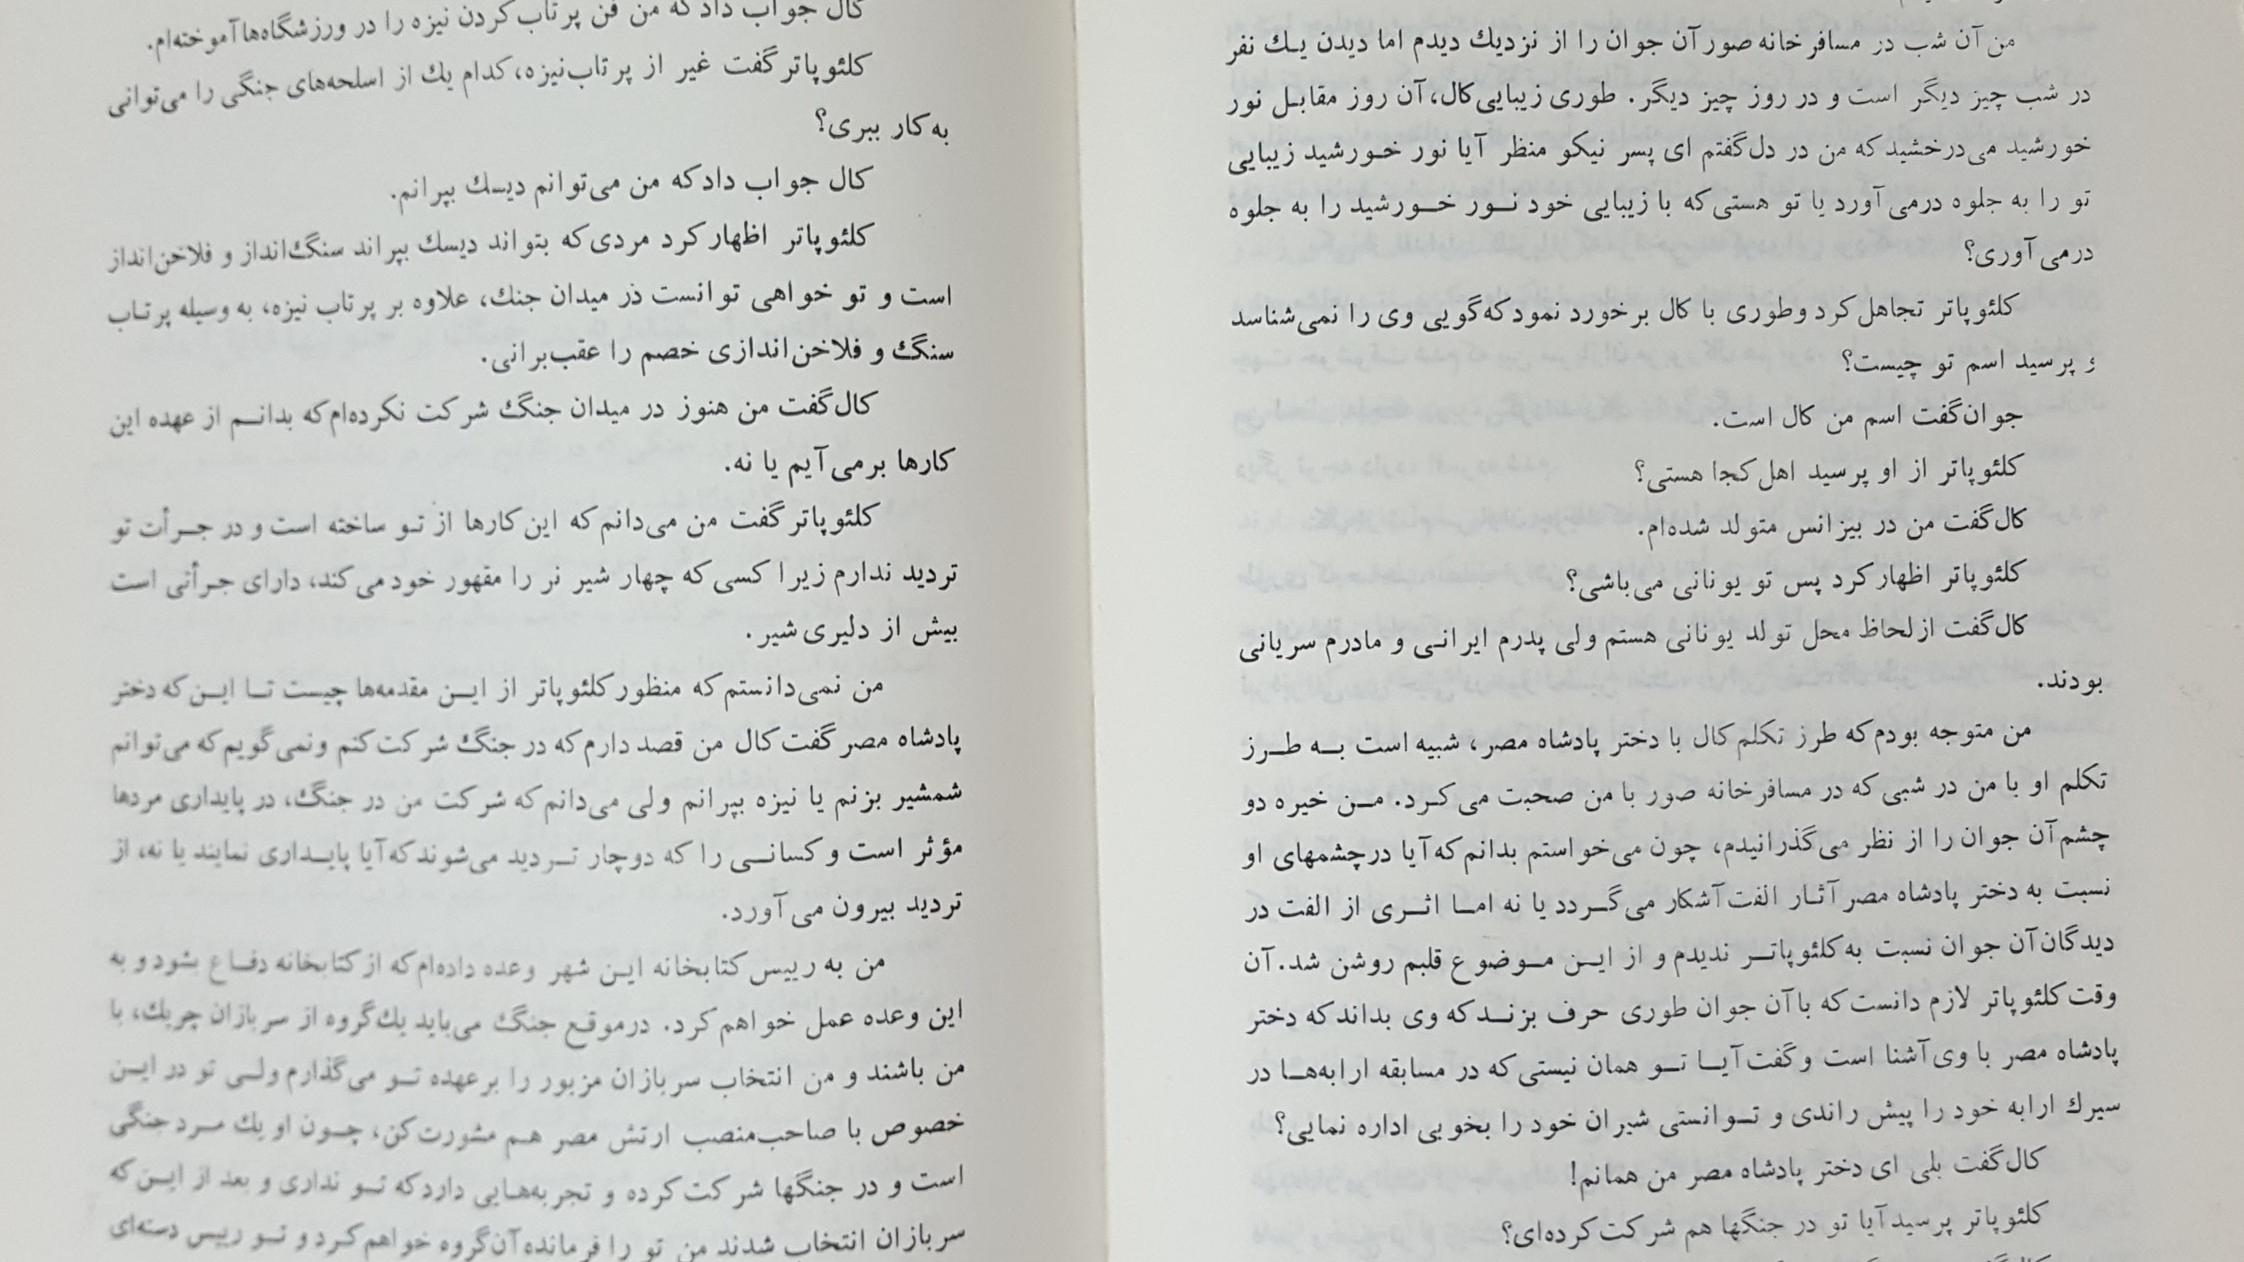 من آن شب در مسافرخانه صور آن جوان را از نزدیك دیدم اما دیدن یـك نفر
در شب چیز دیگر است و در روز چیز دیگر. طوری زیبایی کال، آن روز مقابـل نور
خورشید می‌درخشید که من در دل گفتم ای پسر نیکو منظر آیا نور خـورشید زیبایی
تو را به جلوه درمی‌آورد یا تو هستی که با زیبایی خود نـور خـورشید را به جلوه
درمی‌آوری؟
کلئوپاتر تجاهل کرد وطوری با کال برخورد نمود که گویی وی را نمی‌شناسد
و پرسید اسم تو چیست؟
جوان گفت اسم من کال است.
کلئوپاتر از او پرسید اهل کجا هستی؟
کال گفت من در بیزانس متولد شده‌ام.
کلئوپاتر اظهار کرد پس تو یونانی می‌باشی؟
کال گفت از لحاظ محل تولد یونانی هستم ولی پدرم ایرانـی و مادرم سریانی
بودند.
من متوجه بودم که طرز تکلم کال با دختر پادشاه مصر، شبیه است بـه طـرز
تکلم او با من در شبی که در مسافرخانه صور با من صحبت می‌کـرد. مـن خیره دو
چشم آن جوان را از نظر می‌گذرانیدم، چون می‌خواستم بدانم که آیا درچشمهای او
نسبت به دختر پادشاه مصر آثـار الفت آشکار می‌گـردد یا نه امـا اثـری از الفت در
دیدگان آن جوان نسبت به کلئوپاتـر ندیدم و از ایـن مـوضوع قلبم روشن شد. آن
وقت کلئوپاتر لازم دانست که با آن جوان طوری حرف بزنـد که وی بداند که دختر
پادشاه مصر با وی آشنا است و گفت آیـا تـو همان نیستی که در مسابقه ارابه‌هـا در
سیرك ارابه خود را پیش راندی و تـوانستی شیران خود را بخوبی اداره نمایی؟
کال گفت بلی ای دختر پادشاه مصر من همانم!
کلئوپاتر پرسید آیا تو در جنگها هم شرکت کرده‌ای؟
کال جواب داد که من فن پرتاب کردن نیزه را در ورزشگاه‌ها آموخته‌ام.
کلئوپاتر گفت غیر از پرتاب نیزه، کدام یك از اسلحه‌های جنگی را می‌توانی
به کار ببری؟
کال جواب داد که من می‌توانم دیسك بپرانم.
کلئوپاتر اظهار کرد مردی که بتواند دیسك بپراند سنگ‌انداز و فلاخن‌انداز
است و تو خواهی توانست در میدان جنك، علاوه بر پرتاب نیزه، به وسیله پرتاب
سنگ و فلاخن‌اندازی خصم را عقب‌برانی.
کال گفت من هنوز در میدان جنگ شرکت نکرده‌ام که بدانـم از عهده این
کارها برمی‌آیم یا نه.
کلئوپاتر گفت من می‌دانم که این کارها از تـو ساخته است و در جـرأت تو
تردید ندارم زیرا کسی که چهار شیر نر را مقهور خود می‌کند، دارای جـرأتی است
بیش از دلیری شیر.
من نمی‌دانستم که منظور کلئوپاتر از ایـن مقدمه‌ها چیست تـا ایـن که دختر
پادشاه مصر گفت کال من قصد دارم که در جنگ شرکت کنم و نمی‌گویم که می‌توانم
شمشیر بزنم یا نیزه بپرانم ولی می‌دانم که شرکت من در جنگ، در پایداری مردها
مؤثر است و کسانـی را که دوچار تـردید می‌شوند که آیا پایـداری نمایند یا نه، از
تردید بیرون می‌آورد.
من به رییس کتابخانه ایـن شهر وعده داده‌ام که از کتابخانه دفـاع بشود و به
این وعده عمل خواهم کرد. درموقـع جنگ می‌باید یك گروه از سربازان چریك، با
من باشند و من انتخاب سربازان مزبور را برعهده تـو می‌گذارم ولـی تو در ایـن
خصوص با صاحب‌منصب ارتش مصر هـم مشورت کن، چـون او یك مـرد جنگی
است و در جنگها شرکت کرده و تجربه‌هـایی دارد که تـو نداری و بعد از ایـن که
سربازان انتخاب شدند من تو را فرمانده آن گروه خواهم کـرد و تـو رییس دسته‌ای